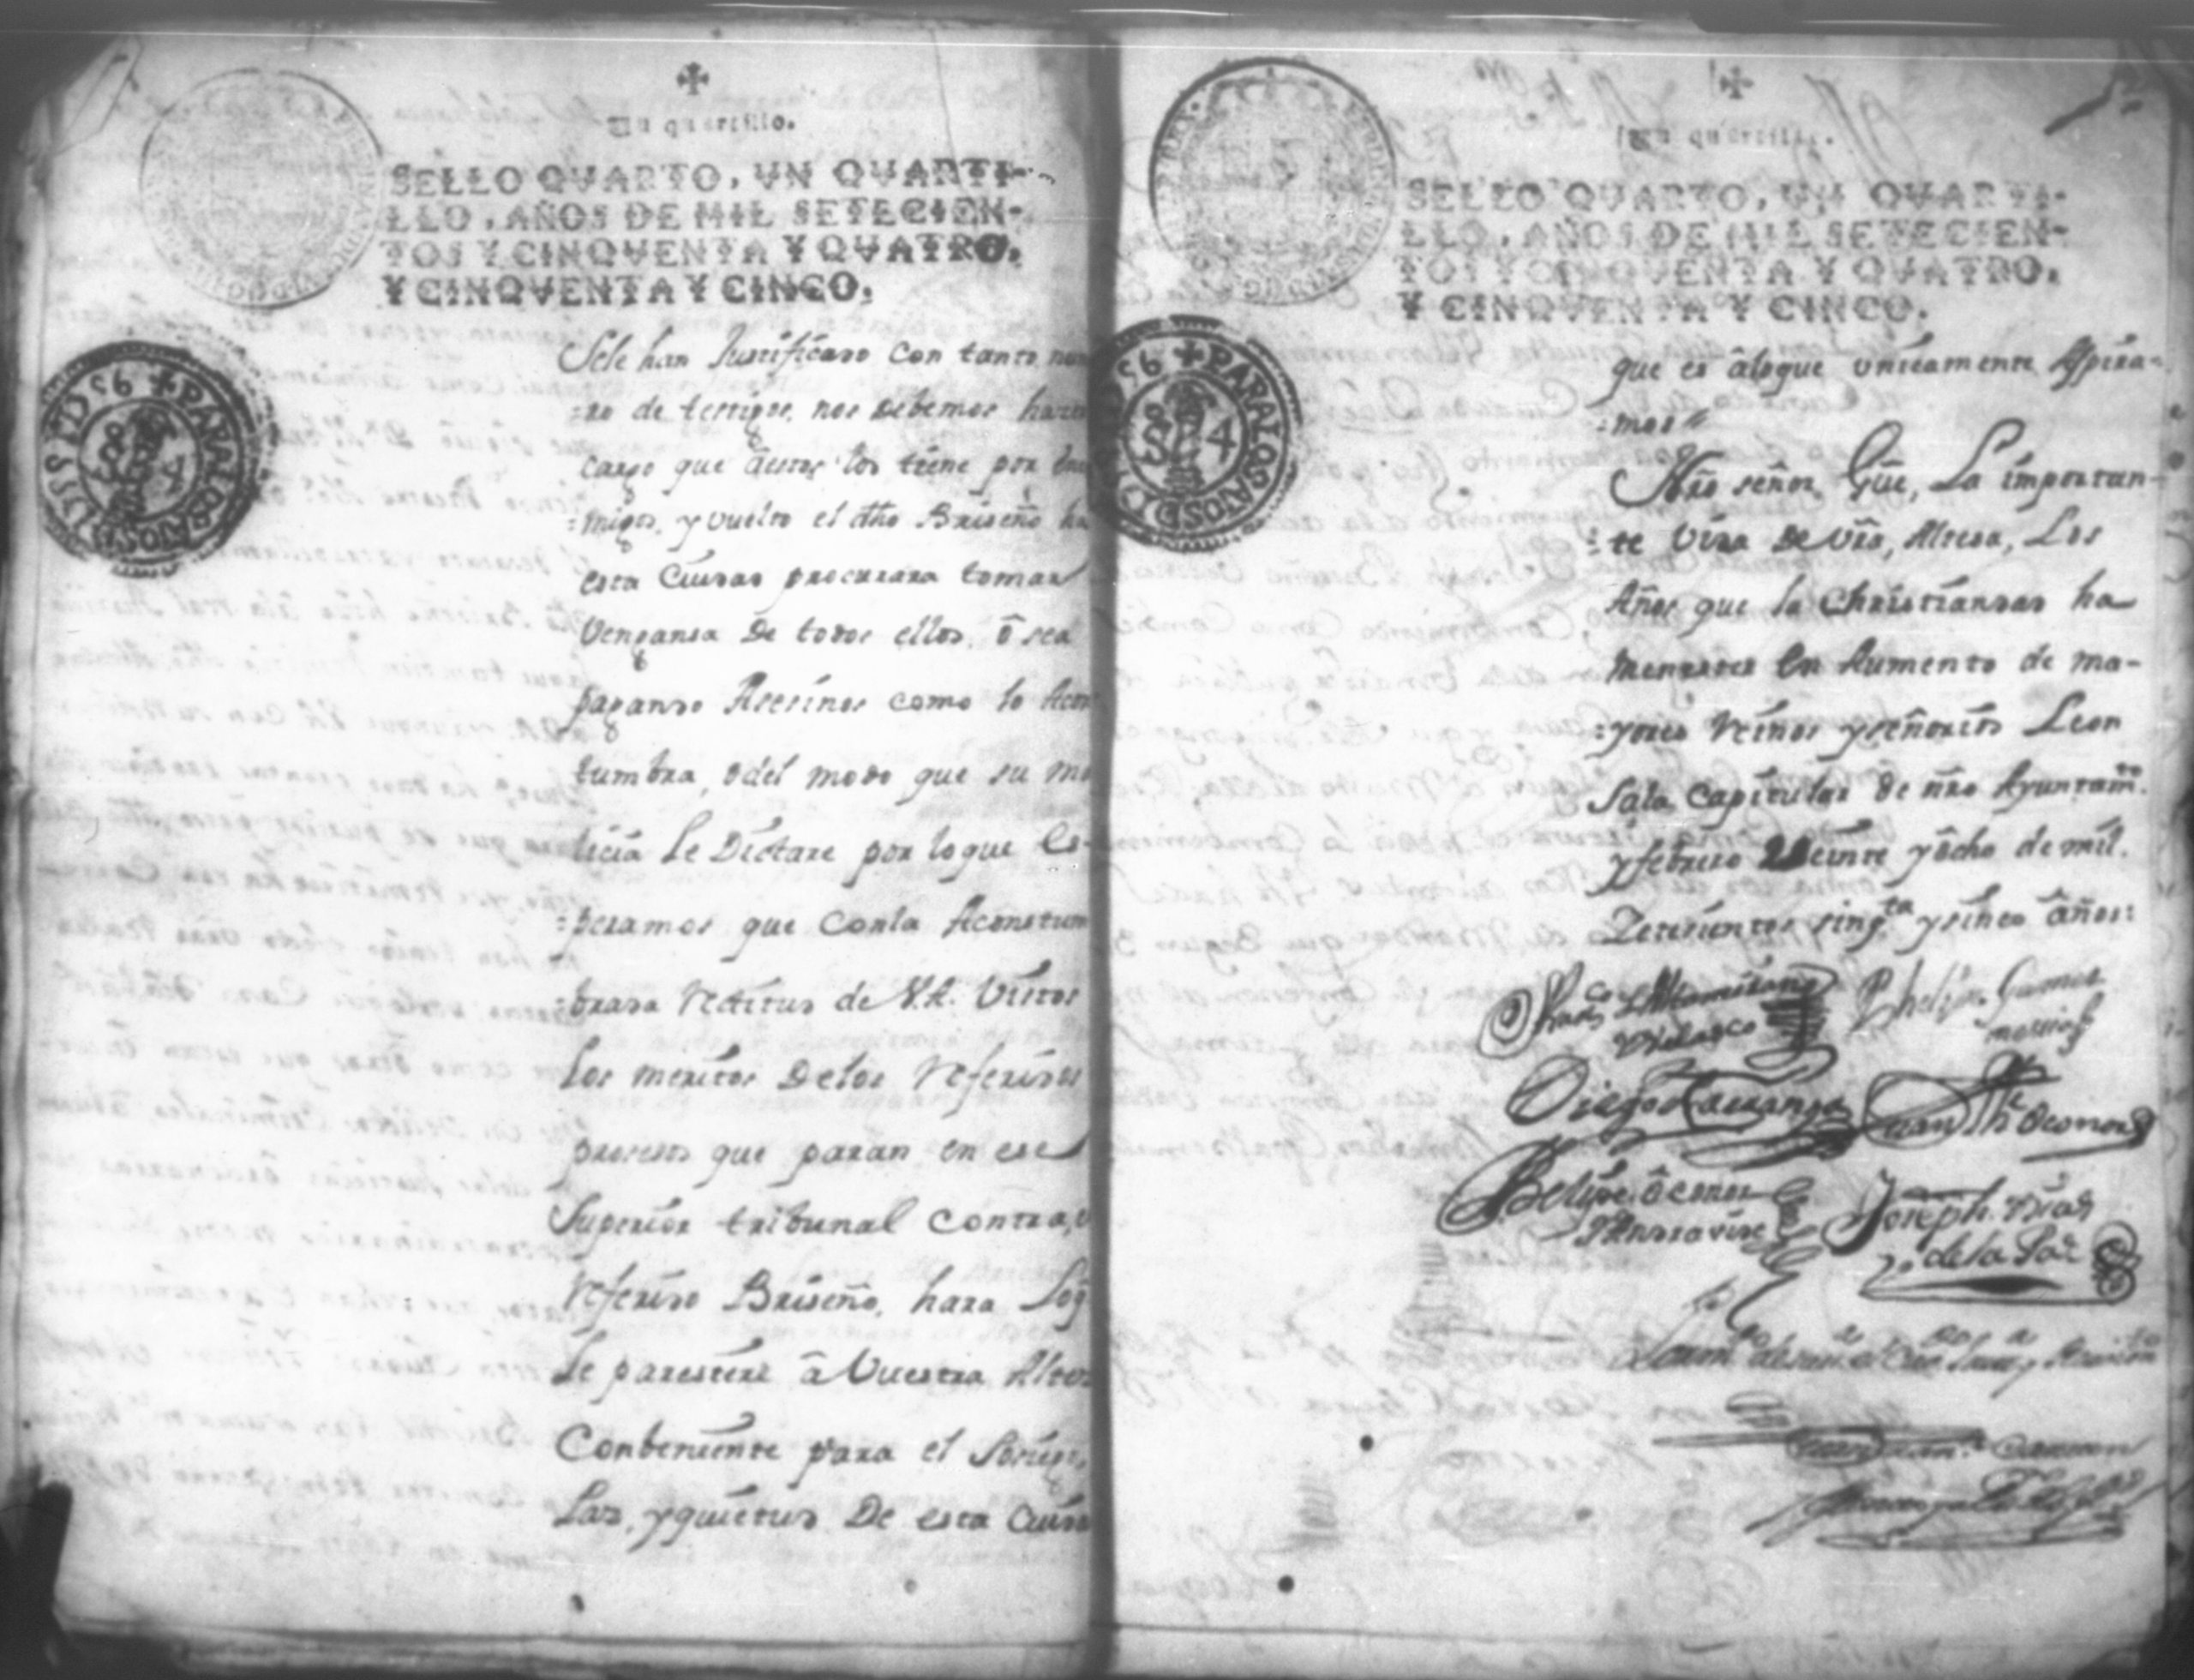 Un quartillo.
SELLO QVARTO, VN QVARTI-
LLO, AÑOS DE MIL SETECIEN-
TOS Y CINQVENTA Y QVATRO,
Y CINQVENTA Y CINCO.
PARA LOS AÑOS D 1755 Y D 56
Sele han Justificado con tanto nu
=ro de testigos, nos debemos hazer
cargo que a estos los tiene por ene
=migos, y vuelto el dho Briseño ha
esta Ciudad procurara tomar
Vengansa De todos ellos, ô sea
pagando Asesinos como lo Acos
tumbra, o del modo que su ma
licia Le Dictare por loque Es-
=peramos que Conla Aconstum
=brada Rectitud de V.A. Vistos
Los meritos Delos Referidos
procesos que paran en ese
Superior tribunal contra, e
Referido Briseño, hara Loq
Le paresiere â Vuestra Altez
Conbeniente para el Sosiego,
Paz, y quietud De esta Ciuda
Un quartillo.
SELLO QVARTO, VN QVARTI-
LLO, AÑOS DE MIL SETECIEN-
TOS Y CINQVENTA Y QVATRO,
Y CINQVENTA Y CINCO.
PARA LOS AÑOS D 1755 Y D 56
que es âloque unicamente Aspira-
=mos
Nro señor Gûe, La importan-
=te Vida De Vrâ, Alteza, Los
Años que la Christiandad ha
menester En Aumento de ma-
=yores Reinos y señorios Leon
Sala Capitular de nrô Ayuntamto.
y febrero Veinte y ôcho de mil.
Setesientos sinqta. y sinco años=
Franco Altamirano
Velasco
Phelipe Gamez
Messia
Diego
Juan Ph Oconor
Felipe Oconor
Joseph Dias
de la Paz